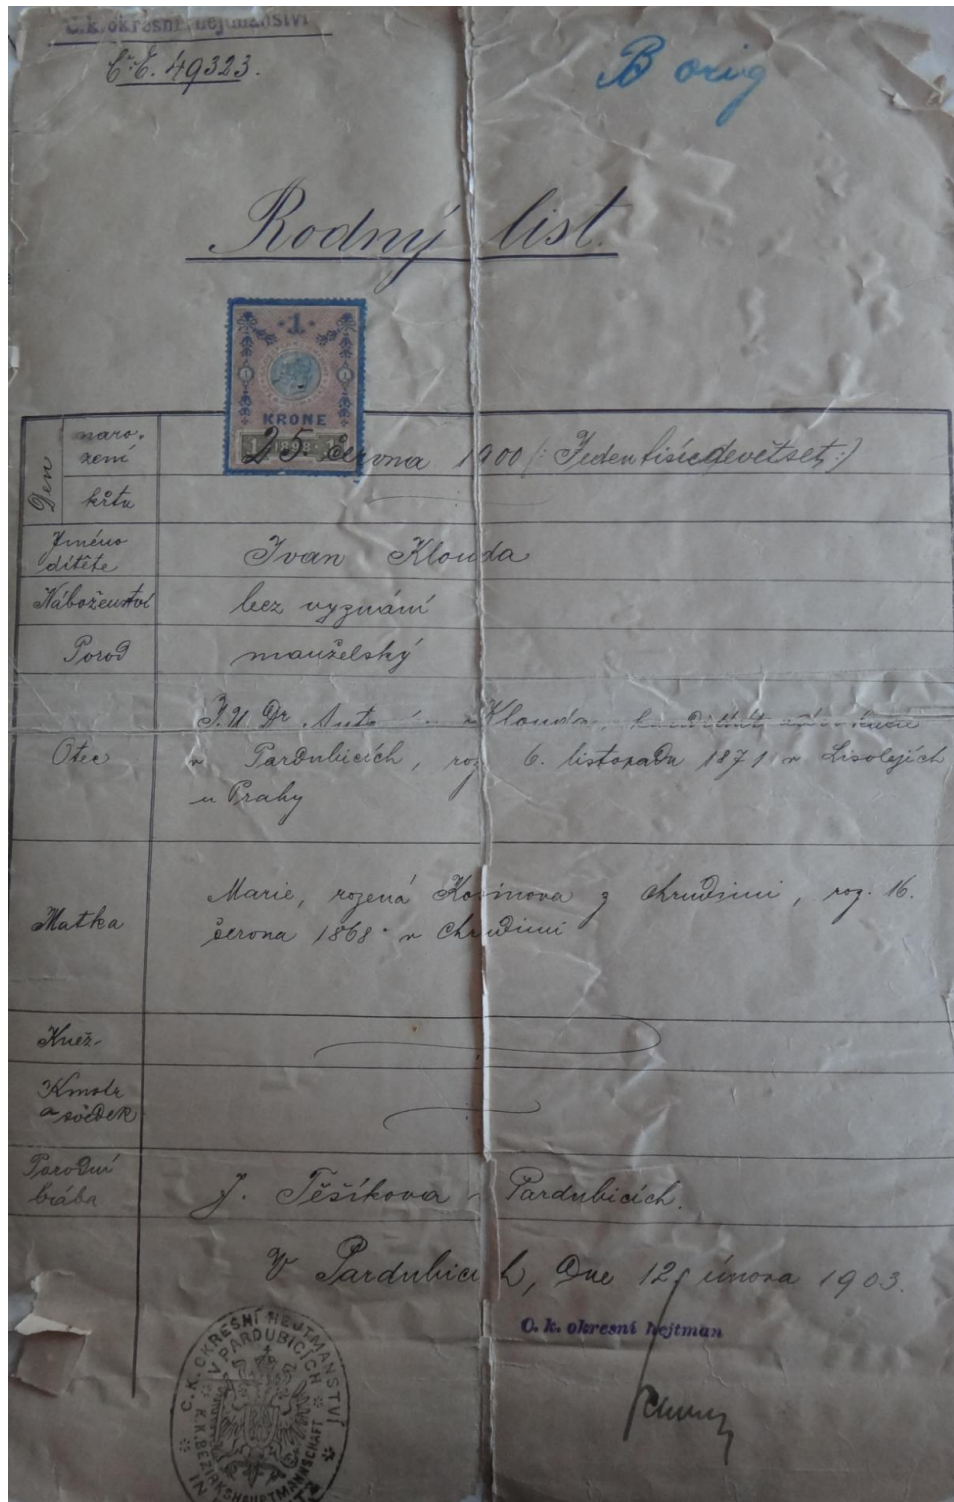 C. k. okresní hejtmanství
Čr. E. 49323.
B orig
Rodný list.
1
1 1
KRONE
1 1898 1
Den
naro-
zení
25. června 1900 (: Jedentisícdevětset :)
křtu
Jméno
dítěte
Ivan Klouda
Náboženství
bez vyznání
Porod
manželský
J. U Dr. Klouda,
Otec
v Pardubicích, roz. 6. listopadu 1871 v Lisolejích
u Prahy
Marie, rozená Kosinova z Chrudimi, roz. 16.
Matka
června 1868 v Chrudimi
Kněz-
Kmotr
a svědek
Porodní
bába
J. Těšíkova v Pardubicích.
V Pardubicích, Dne 12/ února 1903.
C. k. okresní hejtman
C. K. OKRESNÍ HEJTMANSTVÍ
V PARDUBICÍCH
K. K. BEZIRKSHAUPTMANNSCHAFT
IN